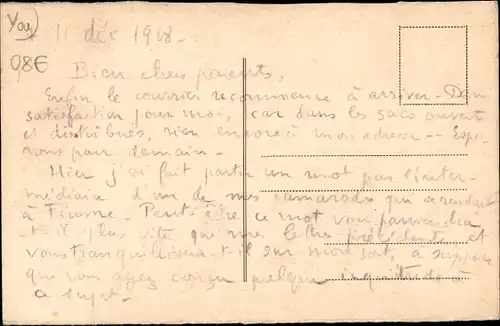 You)
08€
11 déc 1918 -
Bien chers parents,
Enfin le courrier recommence à arriver - Demi
satisfaction pour moi, car dans les sacs ouverts
et distribués, rien encore à mon adresse -- Espé-
rons pour demain -
Hier j'ai fait partir un mot par l'inter-
médiaire d'un de mes camarades qui se rendait
à Fiume - Peut-être ce mot vous parviendra
t-il plus vite que mes lettres précédentes et
vous tranquillisera-t-il sur mon sort, à supposer
que vous ayez conçu quelque inquiétude à
ce sujet -